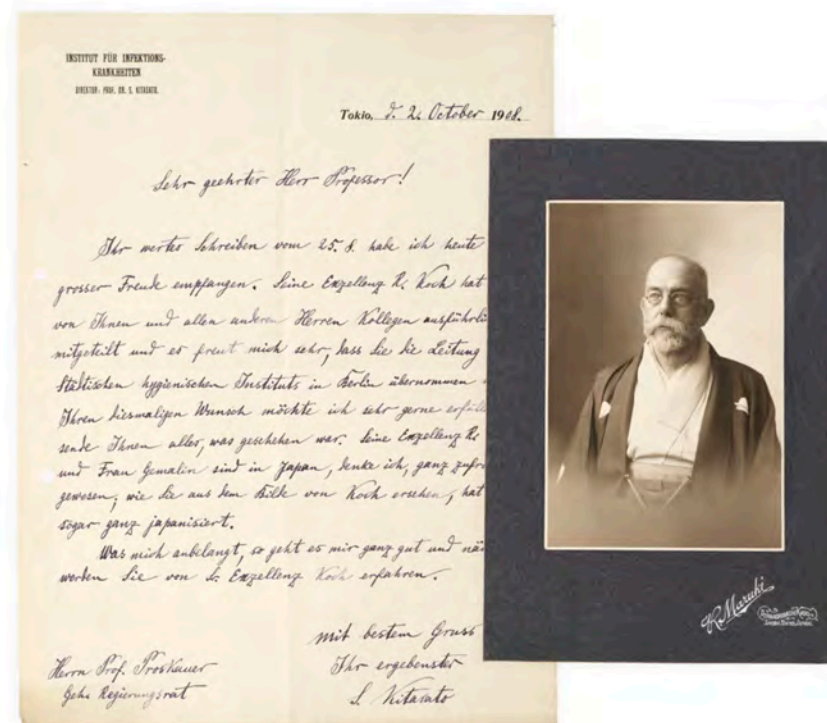 INSTITUT FÜR INFEKTIONS-
KRANKHEITEN
DIREKTOR: PROF. DR. S. KITASATO.
Tokio, d. 2. October 1908.
Sehr geehrter Herr Professor!
Ihr wertes Schreiben vom 25. 8. habe ich heute
grosser Freude empfangen. Seine Exzellenz R. Koch hat
von Ihnen und allen anderen Herren Kollegen ausführli
mitgeteilt und es freut mich sehr, dass Sie die Leitung
Städtischen hygienischen Instituts in Berlin übernommen
Ihren diesmaligen Wunsch möchte ich sehr gerne erfülle
sende Ihnen alles, was geschehen war. Seine Exzellenz R.
und Frau Gemalin sind in Japan, denke ich, ganz zufri
gewesen; wie Sie aus dem Bilde von Koch ersehen, hat
sogar ganz japanisiert.
Was mich anbelangt, so geht es mir ganz gut und nä
werden Sie von Sr. Exzellenz Koch erfahren.
mit bestem Gruss
Ihr ergebenster
S. Kitasato
Herrn Prof. Proskauer
Geh. Regierungsrat
K. Maruki